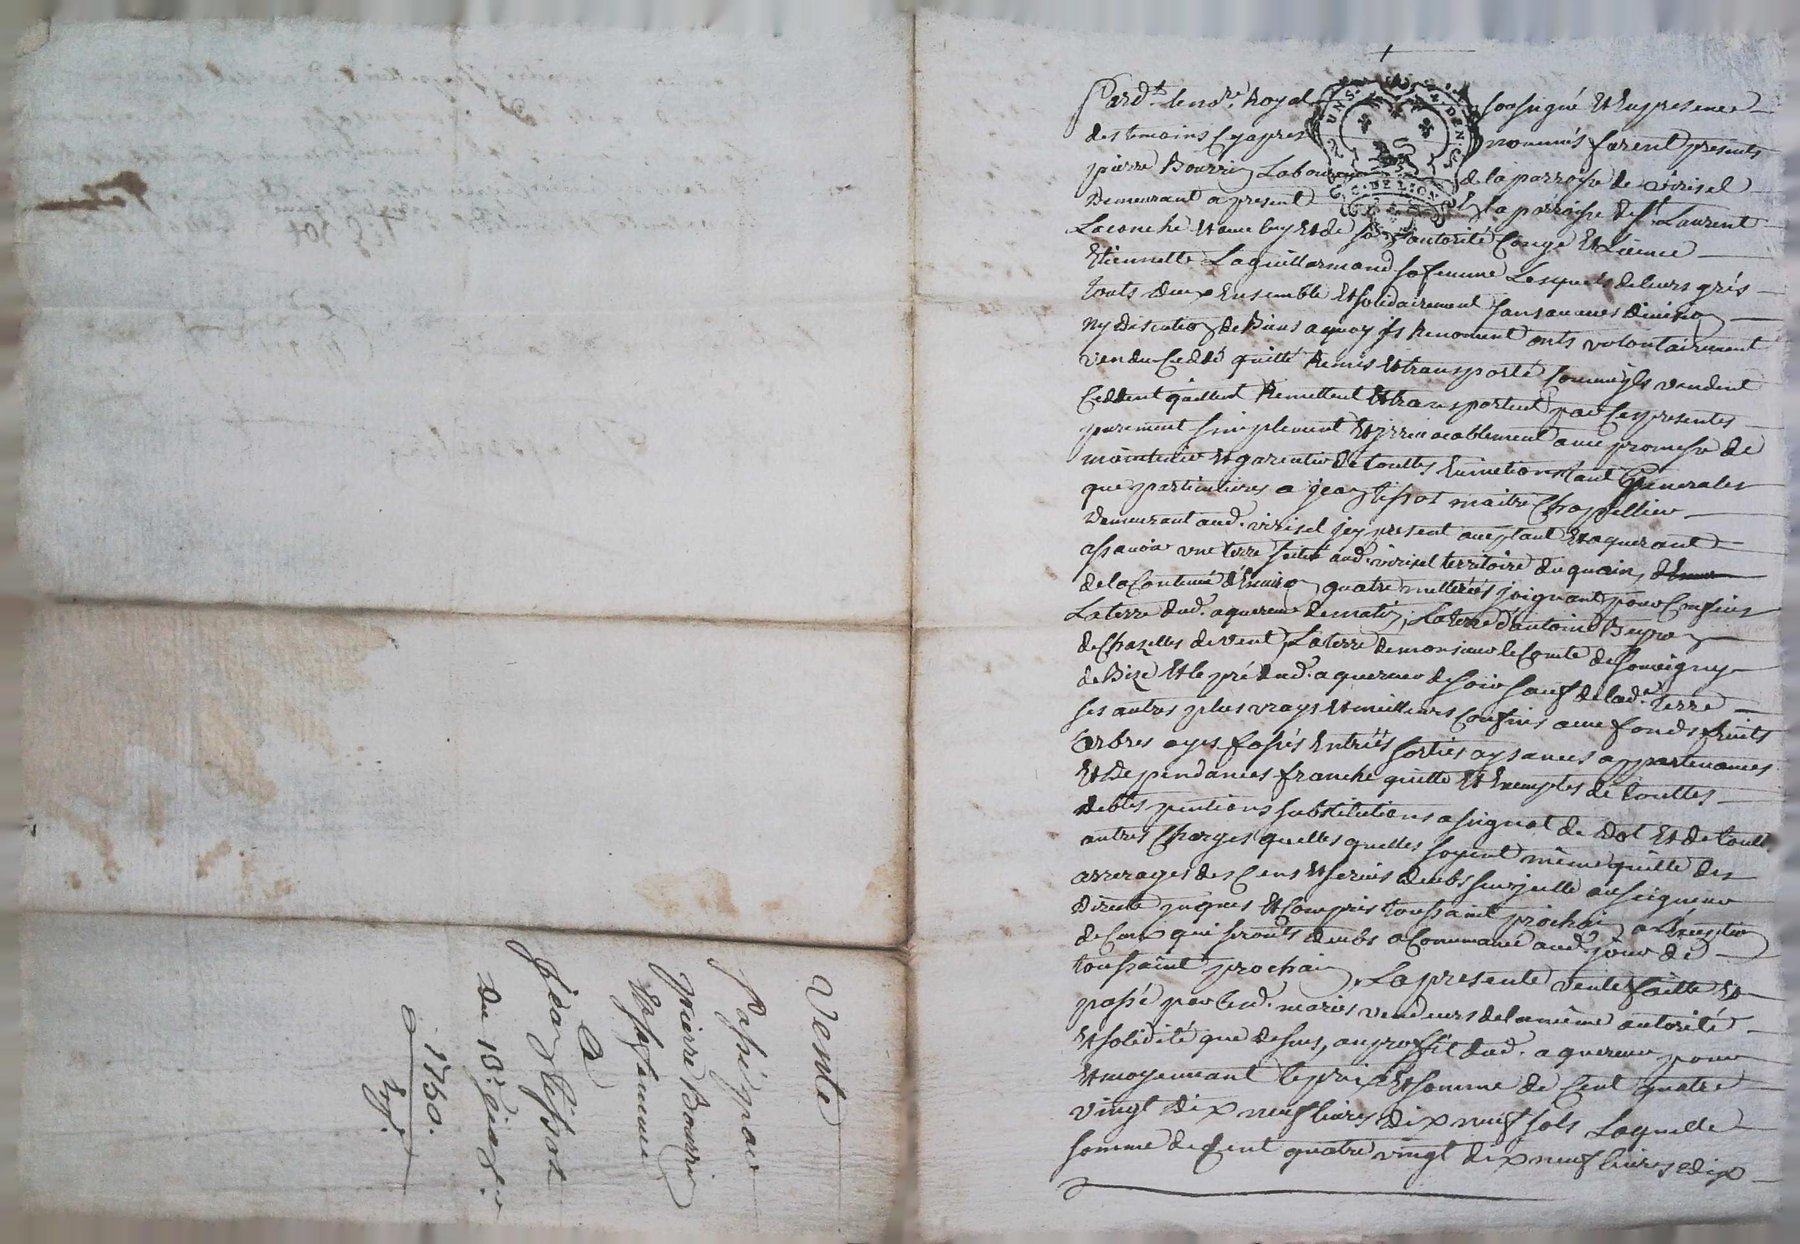 Pard.t le no.re Royal sousigné Et En presence
des temoins cy apres nommés furent presents
pierre Bourrin Laboureur de la parroisse de virisel
Demeurant a present la parroisse de St. Laurent
Laconche Et avec luy Et de son autorité Conge Et Licence
Etiennette Laguillarmand sa femme Lesquels de leurs grés
touts deux Ensemble Et solidairement sans aucunes Divizion
ny Discution de Biens a quoy ils Renoncent onts volontairement
vendu Ceddé quitté Remis Et transporté Comme jls vendent
Ceddent quittent Remettent Et transportent par Ces presentes
purement simplement Et jrrevocablement avec promesse de
maintenir Et garentir de touttes Evinctions tant Generales
que particulieres a jean tissot maitre Chapellier
Demeurant aud. virisel jcy present aceptant Et aquerant
assavoir une terre scitué aud. virisel territoire du
de la Contenue d'Environ quatre metterées joignant pour Confins
La terre dud. aquereur de matin, La terre d'antoine
de Chazelles de vent, La terre de monsieur le Comte de
de Bize Et le pré dud. aquereur de soir sauf de lad.e terre
ses autres plus vrays Et meilleurs Confins avec fonds fruits
arbres ayes fossés Entrées sorties aysances appartenances
Et Dependances franche quitte Et Exemptes de touttes
debtes pentions substitutions asignat de Dot Et de toutt
autres Charges quelles quelles soyent même quitte des
arrerages des Cens Et servis deubs sur jcelle au seigneur
Direct jusques Et Compris toussaint prochain a l'Exeption
de Ceux qui seronts deubs a Commancé aud. jour de
toussaint prochain, La presente vente faitte Et
passé par lesd. mariés vendeurs de la même autorité
Et solidité que dessus, au proffit dud. aquereur pour
Et moyennant le prix Et somme de Cent quatre
vingt Dix neuf livres Dix neuf sols Laquelle
somme de Cent quatre vingt dix neuf livres dix
Vente
Passé par
pierre Bourrin
Et sa femme
A
jean tissot
Du 13.e
1750.